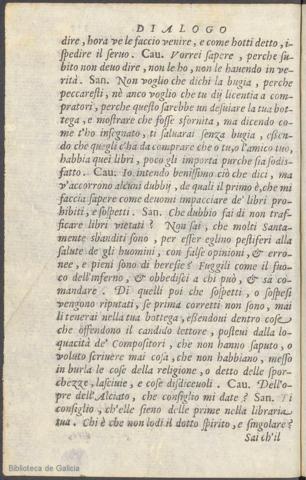 DIALOGO
dire, hora ve le faccio venire, e come hotti detto, i-
spedire il seruo. Cau. Vorrei sapere, perche su-
bito non deuo dire, non le ho, non le hauendo in ve-
rità. San. Non voglio che dichi la bugia, perche
peccaresti, nè anco voglio che tu dij licentia a com-
pratori, perche questo sarebbe un desuiare la tua bot-
tega, e mostrare che fosse sfornita, ma dicendo co-
me t'ho insegnato, ti saluarai senza bugia, essen-
do che quegli c'ha da comprare che o tu, o l'amico tuo,
habbia quei libri, poco gli importa purche sia sodis-
fatto. Cau. Io intendo benissimo ciò che dici, ma
v'accorrono alcuni dubbij, de quali il primo è, che mi
faccia sapere come deuomi impacciare de' libri pro-
hibiti, e sospetti. San. Che dubbio fai di non traf-
ficare libri vietati? Non sai, che molti Santa-
mente sbanditi sono, per esser eglino pestiferi alla
salute de gli huomini, con false opinioni, & erro-
nee, e pieni sono di heresie? Fuggili come il fuo-
co dell'inferno, & obbedisci a chi può, & sa co-
mandare. Di quelli poi che sospetti, o sospesi
vengono riputati, se prima corretti non sono, mai
li tenerai nella tua bottega, essendoui dentro cose
che offendono il candido lettore, posteui dalla lo-
quacità de' Compositori, che non hanno saputo, o
voluto scriuere mai cosa, che non habbiano, messo
in burla le cose della religione, o detto delle spor-
chezze, lasciuie, e cose disdiceuoli. Cau. Dell'o-
pre dell'Alciato, che consiglio mi date? San. Ti
consiglio, ch'elle sieno delle prime nella libraria
tua. Chi è che non lodi il dotto spirito, e singolare?
Sai ch'il
Biblioteca de Galicia